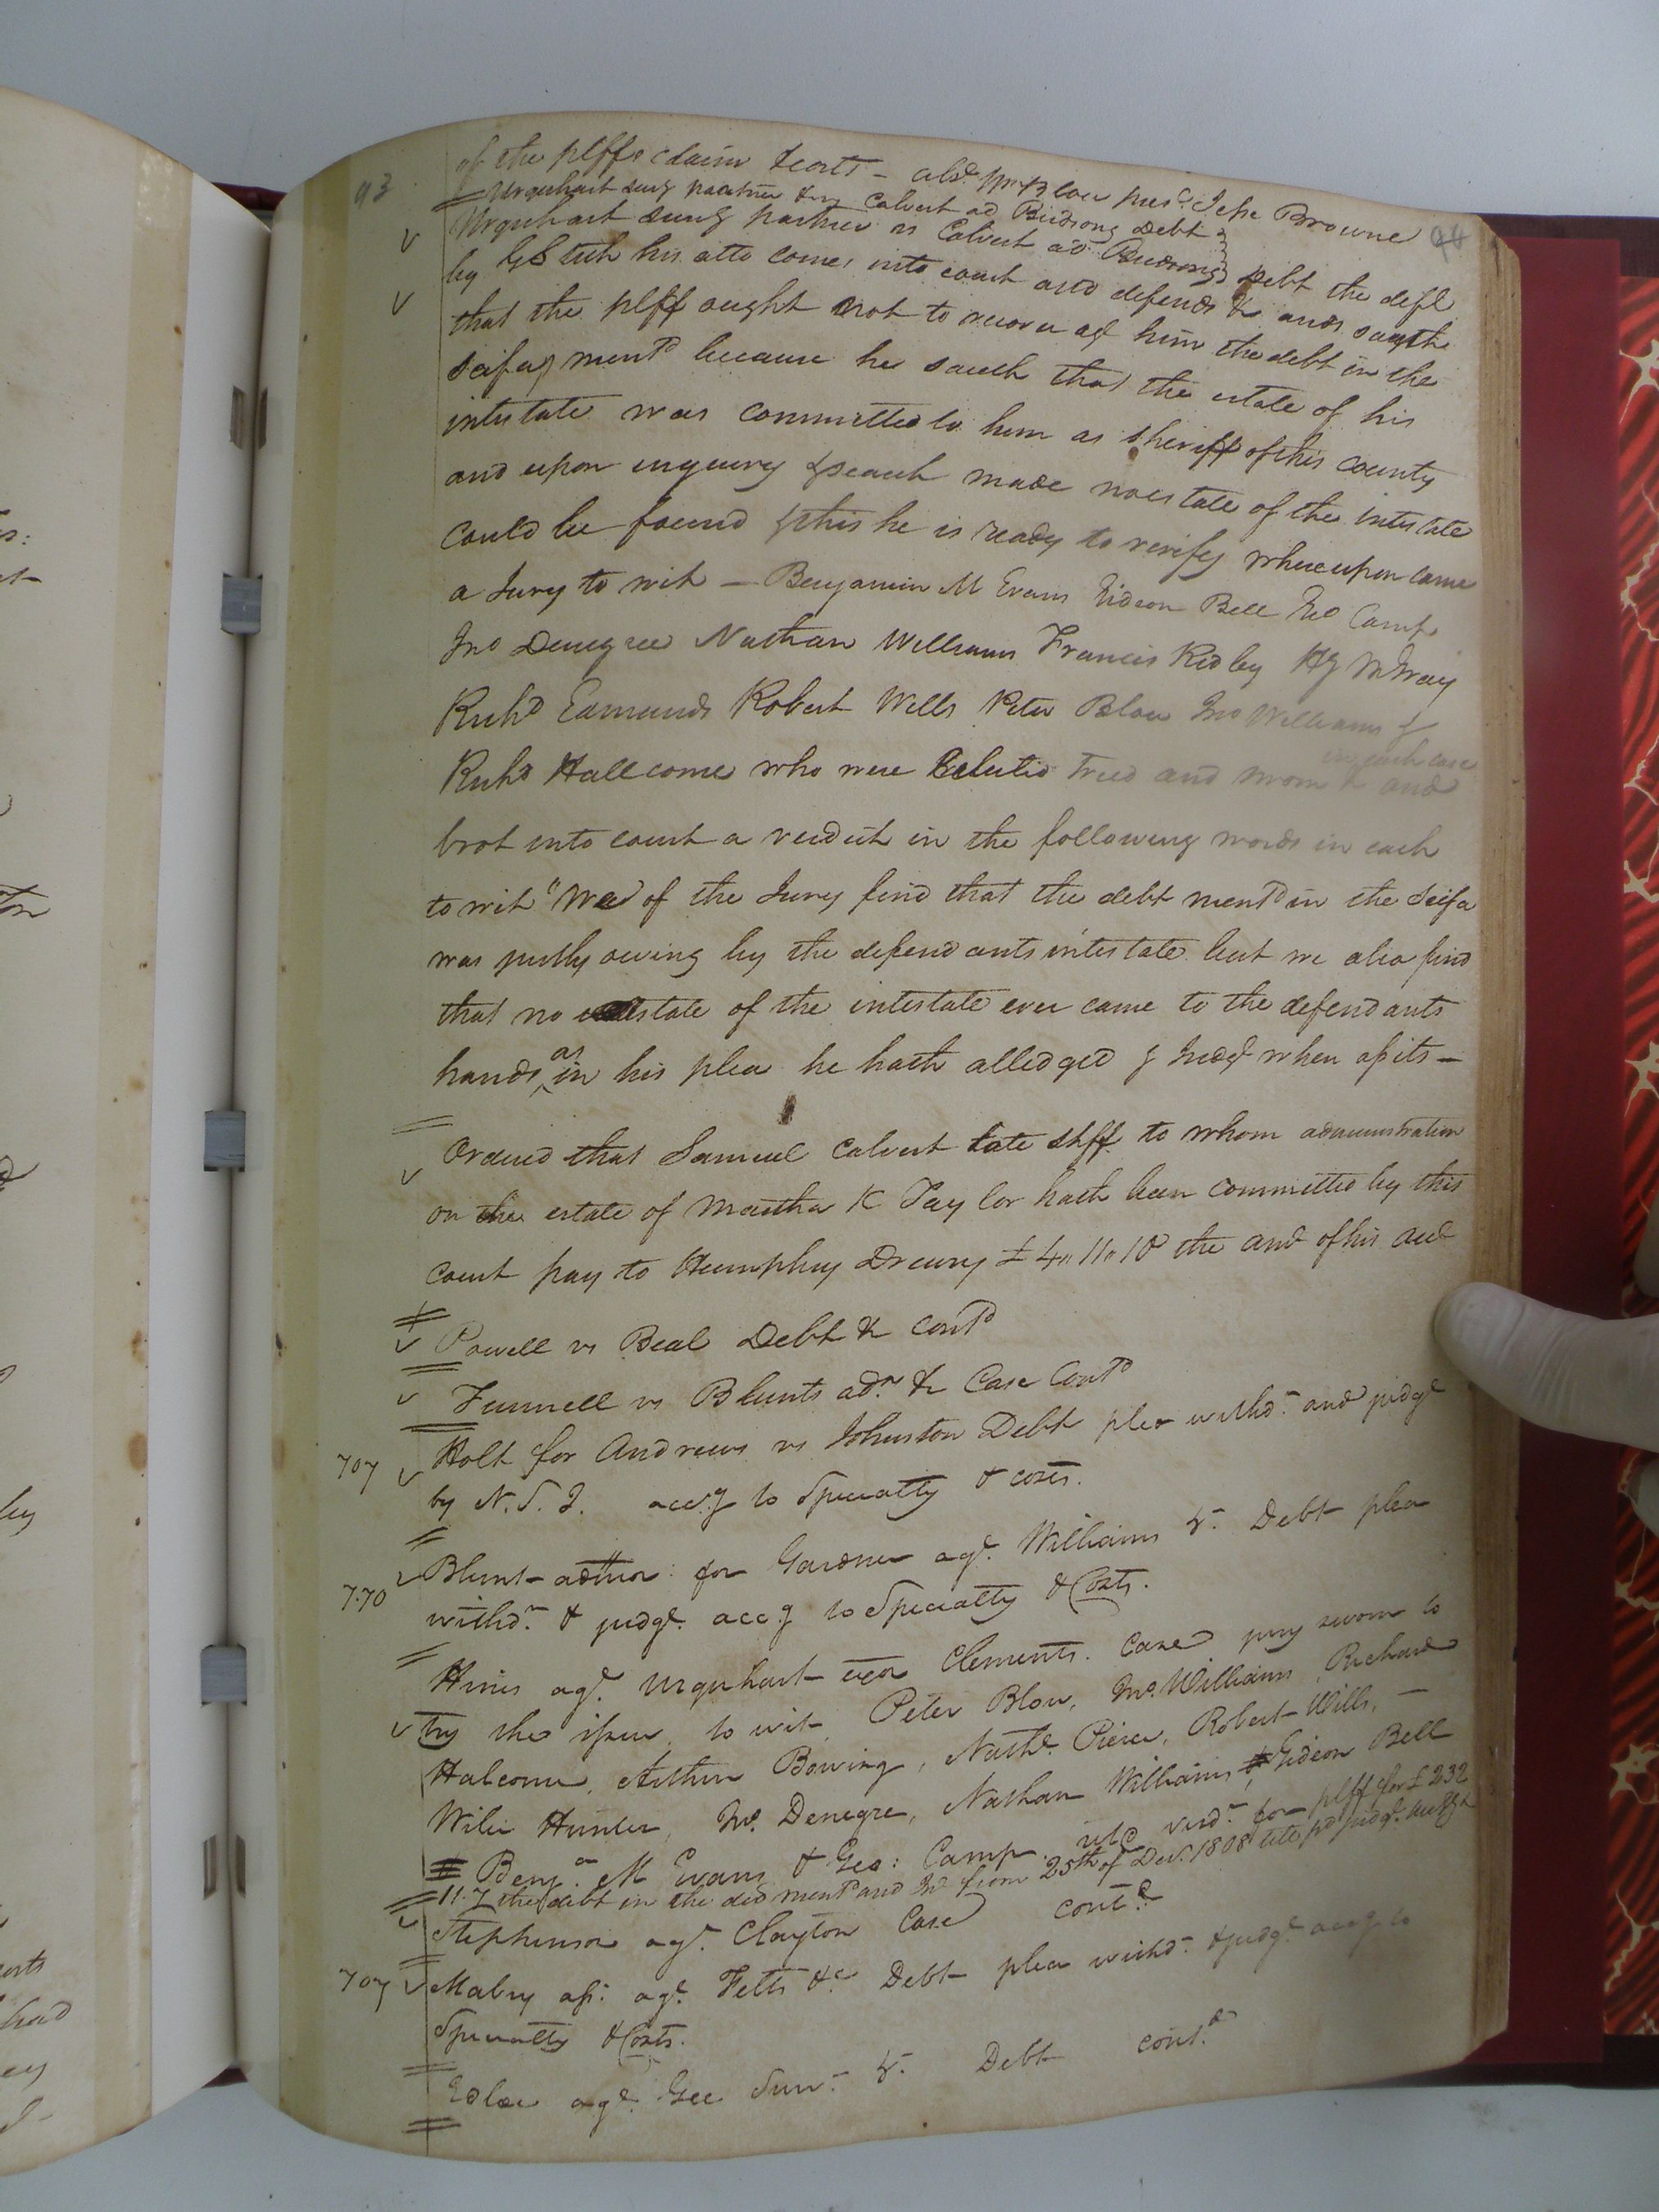 93
of the plffs claim & costs - absd. Wm Blow prest. Jesse Browne 94
Urquhart surg partner &c vs Calvert ad Birdsong Debt
Urquhart surg partner vs Calvert ad Birdsong Debt the deft
by his atto comes into court and defends &c and saith
that the plff ought not to recover agt him the debt in the
scifa mentd because he saith that the estate of his
intestate was committed to him as sheriff of this county
and upon inquiry & search made no estate of the intestate
could be found & this he is ready to verify whereupon came
a Jury to wit - Benjamin M Evans Gideon Bell Geo Camp
Jno Denegree Nathan Williams Francis Ridley
Richd Edmunds Robert Wills Peter Blow Jno Williams &
in each case
Richd Hallcome who were Elected Tried and sworn &c and
brot into court a verdict in the following words in each
to wit "We of the Jury find that the debt mentd in the Scifa
was justly owing by the defendants intestate but we also find
that no estate of the intestate ever came to the defendants
hands as in his plea he hath alledged & Judgt when assits -
Ordered that Samuel Calvert late shff to whom administration
on the estate of Martha K Taylor hath been committed by this
court pay to Humphrey Drewry £4"11"10 the amt of his acct
Powell vs Beal Debt &c contd
Funnell vs Blunts adr &c Case Contd
707 Holt for Andrews vs Johnston Debt plea withdn and judgt
by N.S.I. accg to Specialty & costs.
Blunt admor: for Gardner agt. Williams &c. Debt plea
770 withdn. & judgt. accg to Specialty & Costs.
Hines agt. Urquhart exor Clements. Case jury sworn to
try the issue, to wit, Peter Blow, Jno. Williams, Richard
Halcome, Arthur Bowing, Nathl. Pierce, Robert Wills, -
Wilie Hunter, Jno. Denegre, Nathan Williams, Gideon Bell
Benjn. M Evans & Geo: Camp verdt. for plff for £232
11.7 the debt in the mentd and Int from 25th of Decr. 1808 till pd judgt.
Stephenson agt. Clayton Case contd.
707 Mabry ass: agt. Felts &c Debt plea withd. & judgt. accg to
Specialty & Costs.
Edloe agt. Gee Surv. &c. Debt contd.